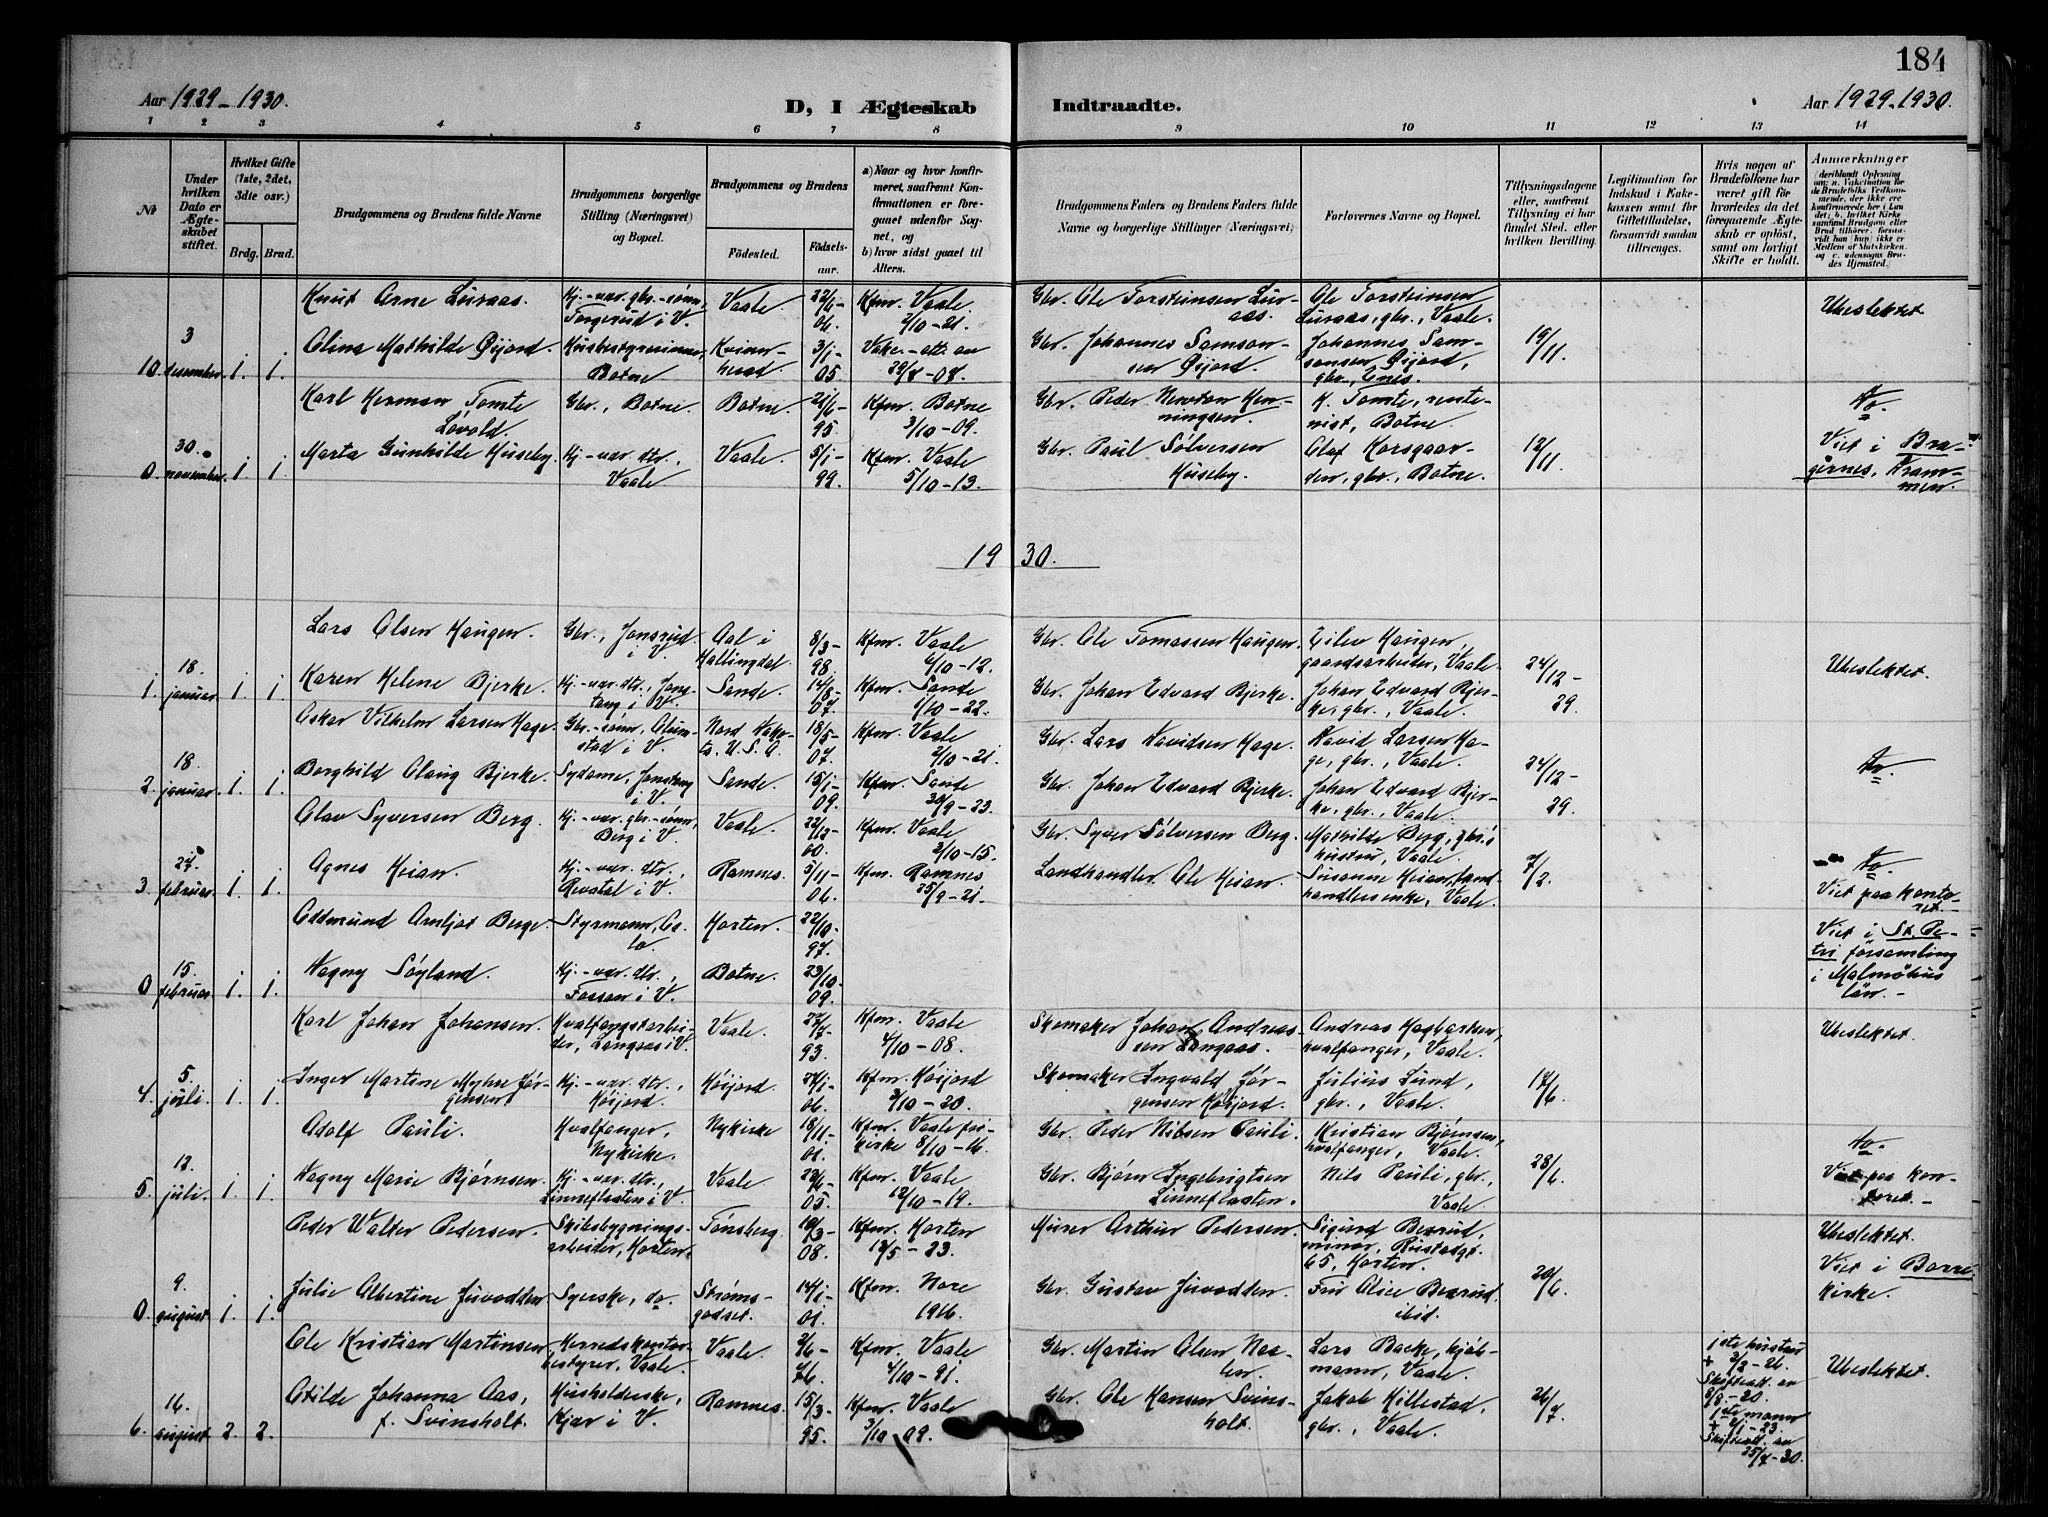 184
Aar 1929-1930.
D, I Ægteskab
Indtraadte.
Aar 1929-1930.
1 2 3 4 5 6 7 8 9 10 11 12 13 14
№
Under hvilken Dato er Ægteskabet stiftet.
Hvilket Gifte (1ste, 2det, 3die osv.)
Brdg. Brud.
Brudgommens og Brudens fulde Navne
Brudgommens borgerlige Stilling (Næringsvei) og Bopæl.
Brudgommens og Brudens
Födested.
Födsels-aar.
a) Naar og hvor konfirmeret, saafremt Konfirmationen er foregaaet udenfor Sognet, og
b) hvor sidst gaaet til Alters.
Brudgommens Faders og Brudens Faders fulde Navne og borgerlige Stillinger (Næringsvei)
Forlovernes Navne og Bopæl.
Tillysningsdagene eller, saafremt Tillysning ei har fundet Sted, efter hvilken Bevilling.
Legitimation for Indskud i Enkekassen samt for Giftetilladelse, forsaavidt saadan tiltrænges.
Hvis nogen af Brudefolkene har været gift før hvorledes da det foregaaende Ægteskab er opløst, samt om lovligt Skifte er holdt.
Anmærkninger
Knut Arne Luraas. Kj.-vær. gbr.-sønn, Torgerud i V. Vaale 22/6-06. Kfm. Vaale 2/10-21. Gbr. Ole Torsteinsen Luraas. Ole Torsteinsen Luraas, gbr., Vaale. Ubeslektet
10. 3 desember. 1. 1. Olina Mathilde Øijord. Husbestyrerinne, Botne Kvinnherad. 3/1-05. Gbr. Johannes Samsonsen Øijord. Johannes Samsonsen Øijord, gbr., Enes. 19/11.
Karl Herman Tomte Løvold. Gbr., Botne. Botne. 21/6-95. Kfm. Botne 3/10-09. Gbr. Peder Newton Henningsen. H. Tomte, rentenist, Botne. Do.
0. 30. november. 1. 1. Marta Gunhilde Huseby. Kj.-vær. dtr., Vaale Vaale. 5/1-99. Kfm. Vaale 5/10-13. Gbr. Paul Sølversen Huseby. Olaf Korsgaarden, gbr., Botne. 12/11. Viet i Bragernes, Drammen.
1930.
Lars Olsen Haugen. Gbr., Jonsrud i V. Aal i Hallingdal. 8/3-98 Kfm. Vaale 6/10-12. Gbr. Ole Tomassen Haugen. Eilev Haugen, gaardsarbeider, Vaale.
1. 18. januar 1. 1. Karen Helene Bjerke. Kj.-vær. dtr., i V. Sande. 14/8-07. Kfm. Sande 1/10-22. Gbr. Johan Edvard Bjerke. Johan Edvard Bjerke, gbr., Vaale. 24/12-29. Ubeslektet.
Oskar Vilhelm Larsen Hage. Gbr.-sønn, i V. Nord Dakota, U.S.A. 18/5-07. Kfm. Vaale 2/10-21. Gbr. Lars Davidsen Hage. David Larsen Hage, gbr., Vaale.
2. 18. januar. 1. 1. Borghild Olaug Bjerke. Sydame, i V. Sande. 15/1-09. Kfm. Sande 30/9-23. Gbr. Johan Edvard Bjerke. Johan Edvard Bjerke, gbr., Vaale. 24/12-29. Do.
Olav Syversen Berg. Kj.-vær. gbr.-sønn, Berg i V. Vaale. 22/12-00 Kfm. Vaale 3/10-15. Gbr. Syver Sølversen Berg. Mathilde Berg, gbr.'s hustru, Vaale.
3. 27. februar. 1. 1. Agnes Heian. Kj.-vær. dtr. Revetal i V. Ramnes. 5/11-06. Kfm. Ramnes 25/9-21. Landhandler Ole Heian. Susanne Heian, landhandlerenke, Vaale. 7/2. Do. Viet paa kontoret.
Oddmund Arnljot Berge. Styrmann, Oslo. Horten. 22/10-97. Viet i St. Petri församling i Malmöhus län.-
0. 15. februar 1. 1. Dagny Søyland. Kj.-vær. dtr., Fossan i V. Botne. 23/10-09.
Karl Johan Johansen. Hvalfangstarbeider, Langaas i V. Vaale. 27/7-93. Kfm. Vaale 4/10-08. Skomaker Johan Andreassen Langaas. Andreas Hagbartsen, hvalfanger, Vaale. Ubeslektet.
4. 5. juli. 1. 1. Inger Martine Myhre Jørgensen. Kj.-vær. dtr., Høijord. Høijord. 24/1-06. Kfm. Høijord 3/10-20. Skomaker Ingvald Jørgensen Høijord. Julius Lund, gbr., Vaale. 17/6.
Adolf Pauli. Hvalfanger, Nykirke. Nykirke 18/11-01. Kfm. Vaale frikirke 8/10-16. Gbr. Peder Nilsen Pauli. Kristian Bjørnsen, hvalfanger, Vaale. Do.
5. 12. juli. 1. 1. Dagny Marie Bjørnsen. Kj.-vær. dtr., Linneflaaten i V. Vaale 23/6-05. Kfm. Vaale 12/10-19. Gbr. Bjørn Ingebrigtsen Linneflaaten. Nils Pauli, gbr., Vaale. 28/6. Viet paa kontoret.
Peder Walter Pedersen. Skibsbygningsarbeider, Horten. Tønsberg. 19/3-08. Kfm. Horten 13/5-23. Murer Arthur Pedersen. Sigurd Bexrud, minør, Rustadgt. 65, Horten. Ubeslektet.
0. 9. august 1. 1. Julie Albertine Juvodden Syerske, do. Strømsgodset. 14/1-01. Kfm. Nore 1916. Gbr. Gustav Juvodden. Fru Alice Bexrud ibid. 20/6. Viet i Borre kirke.
Ole Kristian Martinsen, Herredskontorbestyrer, Vaale. Vaale. 2/6-76. Kfm. Vaale 4/10-91. Gbr. Martin Olsen Lars Backe, kjøbmann, Vaale. 1ste hustru + 3/2-26. Skifteatt. av 8/8-30. Ubeslektet
6. 16. august 2. 2. Otilde Johanna Aas, f. Svinsholt. Husholderske, Kjær i V. Ramnes. 15/3-95. Kfm. Vaale 3/10-09. Gbr. Ole Hansen Svinsholt. Jakob Hillestad, gbr., Vaale. 26/7. 1ste mann + 2/1-23. Skifteatt. av 25/7-30.